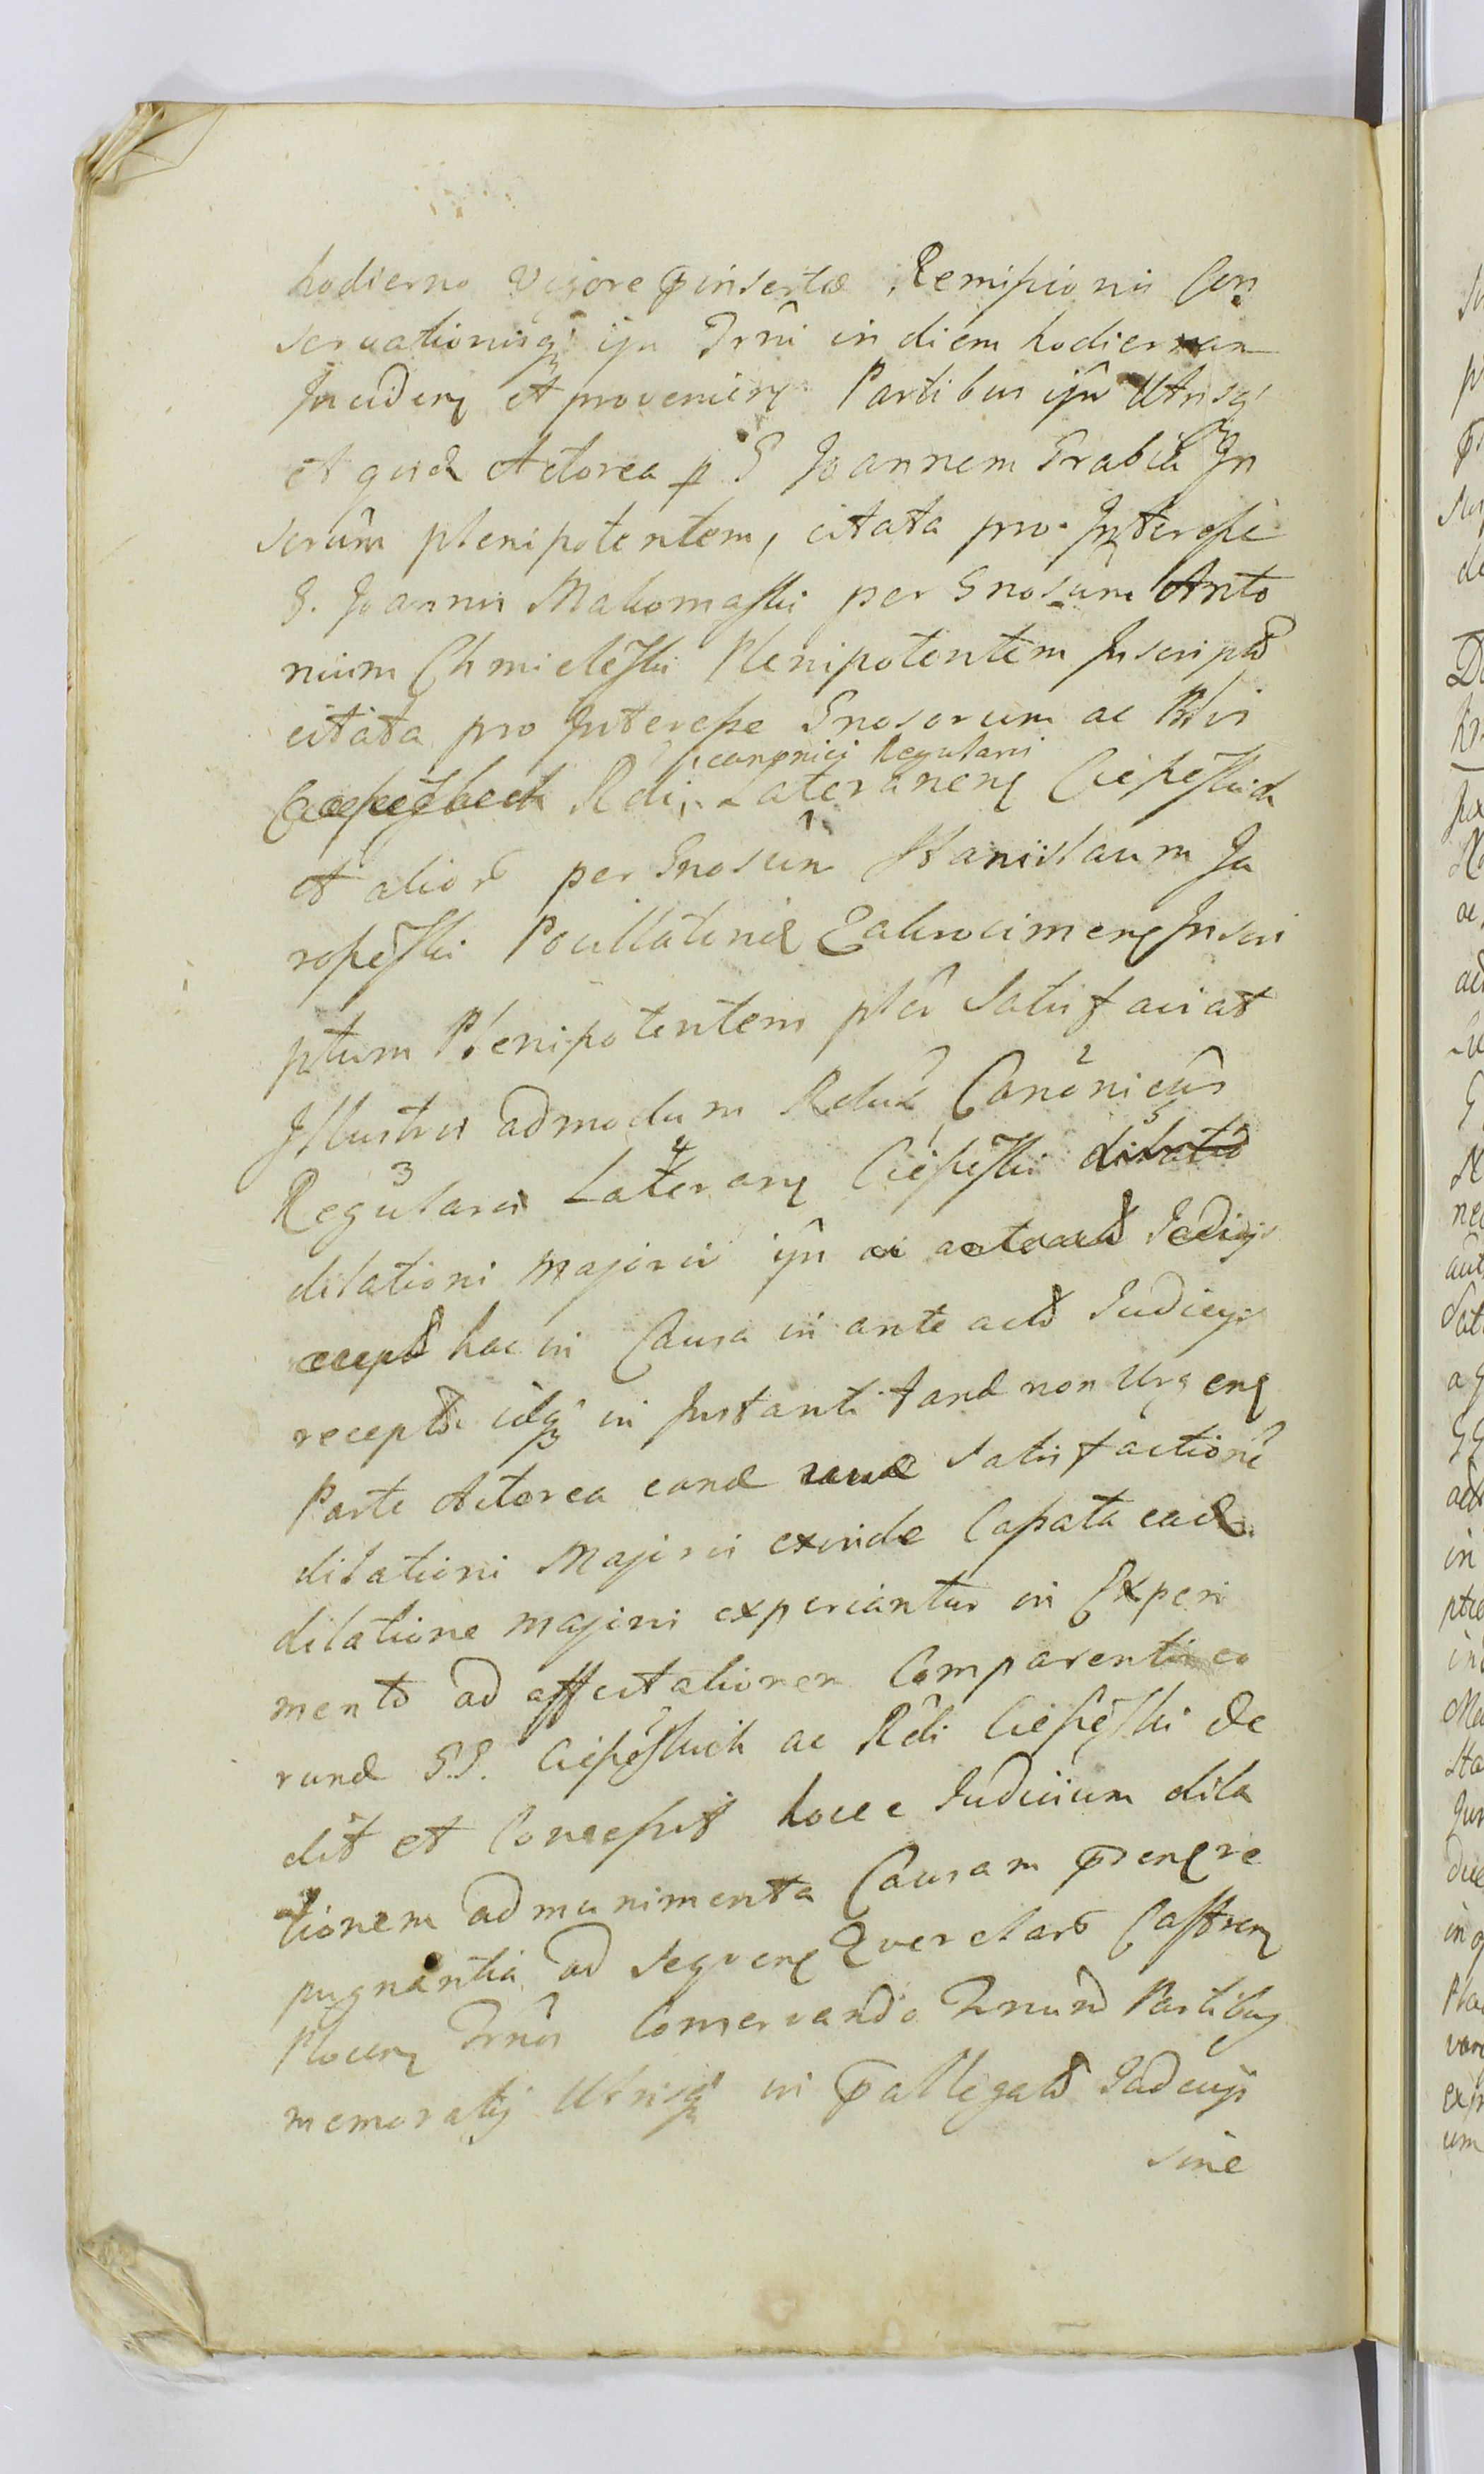 hodierno vigore p̄insertæ Remissionis Con
servationisq̃ ijn Trni in diem hodiernam
Inciden et provenien Partibus ijn Utrisq̃
et quid Actorea p G Joannem Grabia In
scrum plenipotentem, citata pro Interesse
G. Joannis Makomaski per Gnosum Anto
nium Chmieleski Plenipotentem Inscriptu
citata pro Interesse Gnosorum ac
canonici Regularis
Rdi Lateranen Ciepeskich
et alior per Gnosum Stanislaum Ja
roseski Pocillatorid Zakrocimen Inscri
ptum Plenipotentem pter Satisfaciat
Illustris admodum Rdus Canonicus
Regularis Lateran Ciepeski
dilationi majoris ijn
hac in Causa in ante actis Judicijs
recepta idq̃ in Instanti tand non Urgen
Parte Actorea eand satisfactione
dilationi Majoris exinde Capata ead
dilatione majoris experiantur in Experi
mento ad affectationem Comparentis eo
rund G.G. Ciepeskich ac Rdi Ciepeski de
dit et Concessit hocce Judicium dila
tionem ad munimenta Causam p̄sen re
pugnantia ad sequen Querelar Castren
Plocen Trnos Conservando Trnum Partibus
memoratis Utrisq̃ in p̄allegatis Judicijs
sine